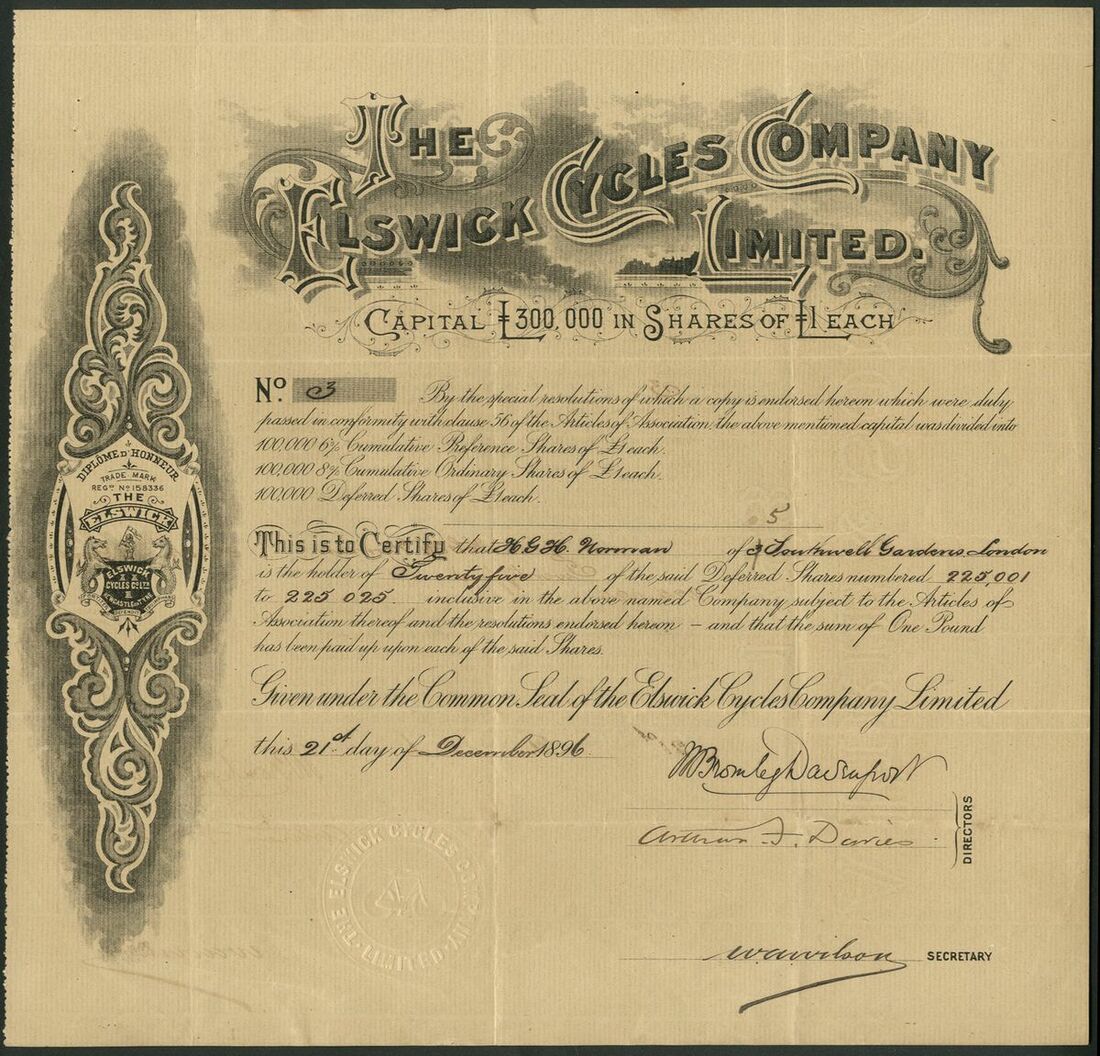 THE
ELSWICK CYCLES COMPANY
LIMITED.
CAPITAL £300,000 IN SHARES OF £1 EACH
No. 3 By the special resolutions of which a copy is endorsed herein which were duly
passed in conformity with clause 56 of the Articles of Association, the above mentioned capital was divided into
100,000 6% Cumulative Preference Shares of £1 each.
100,000 8% Cumulative Ordinary Shares of £1 each.
100,000 Deferred Shares of £1 each.
5
This is to Certify that H G H. Norman of 3 Southwell Gardens, London
is the holder of Twenty five of the said Deferred Shares numbered 225,001
to 225 025 inclusive in the above named Company subject to the Articles of
Association thereof and the resolutions endorsed hereon – and that the sum of One Pound
has been paid up upon each of the said Shares.
Given under the Common Seal of the Elswick Cycles Company Limited
this 21st day of December 1896
W Bromley Davenport
Arthur F. Davies
DIRECTORS
W A Wilson SECRETARY
DIPLÔME D'HONNEUR
TRADE MARK
REGD No 158336
THE
ELSWICK
ELSWICK
CYCLES Co LTD
NEWCASTLE on TYNE
THE ELSWICK CYCLES COMPANY
LIMITED